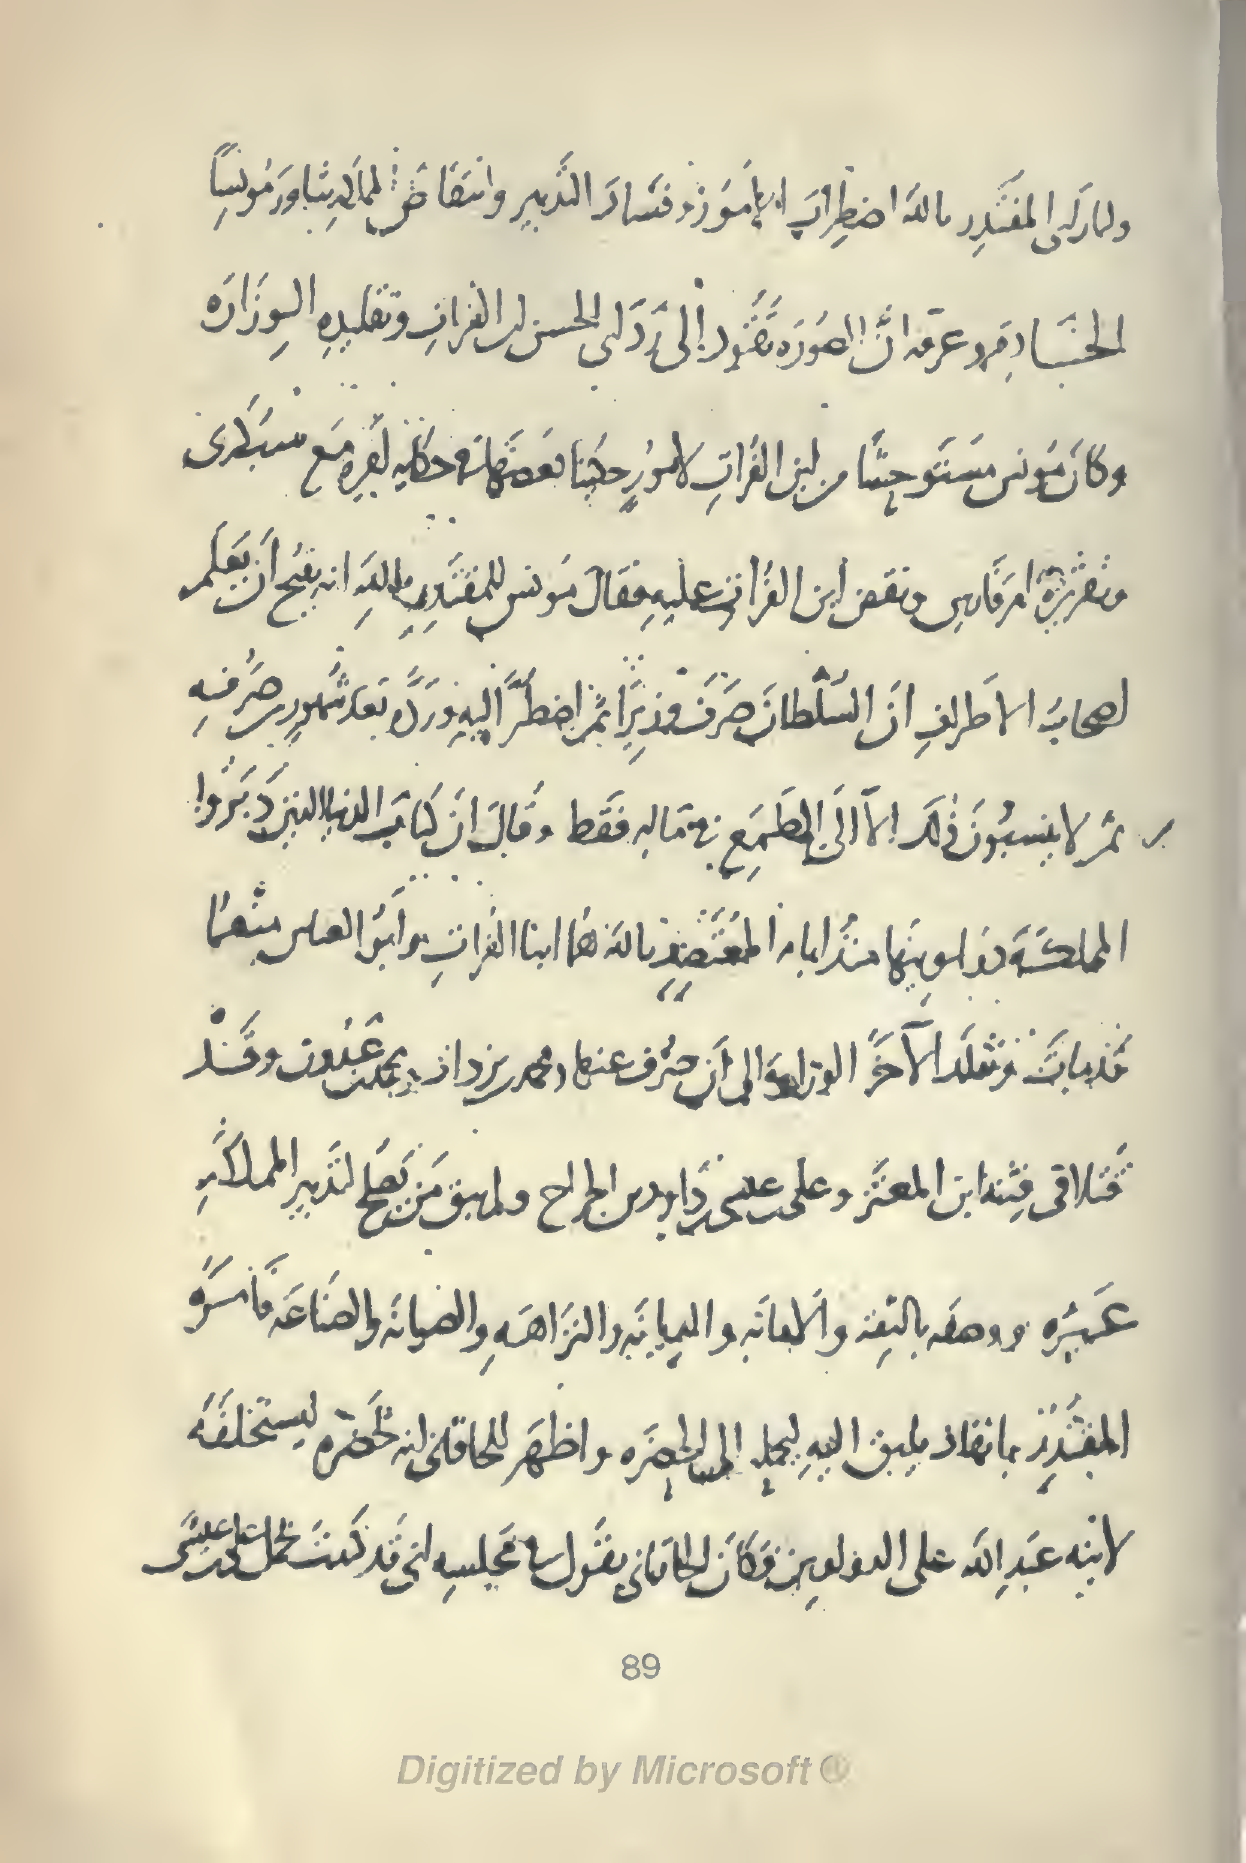 ولما رأى المقتدر بالله اضطراب الأمور وفساد التدبير وانتقاض الممالك شاور مونسًا
الخادم وعرفه ان الصورة تقود إلى رد ابى الحسن ابن الفرات وتقليده الوزارة
وكان مونس مستوحشًا من ابن الفرات لامور حكينا بعضها فى حكاية لغيره مع سبكرى
وتقريره امر فارس ونقض ابن الفرات عليه فقال مونس للمقتدر بالله انه يقبح ان يعلم
اصحاب الاطراف ان السلطان صرف وزيرًا ثم اضطر اليه ورده بعد شهور من صرفه
ثم لا ينسبون ذلك الا الى الطمع فى ماله فقط وقال ان كتاب الدنيا الذين دبروا
المملكة ودواوينها منذ ايام المعتضد بالله هما ابنا الفرات وابو العباس منهما
قد مات وتقلد الآخر الوزارة الى أن صرف عنها ومحمد بن داود ومحمد بن عبدون وقد
قتلا فى فتنة ابن المعتز وعلى بن عيسى بن داود بن الجراح ولم يبق من يصلح لتدبير المملكة
غيره ووصفه بالثقة والامانة والديانة والنزاهة والصيانة والصناعة فأمره
المقتدر بانفاذ يلبق اليه ليحمله الى الحضرة واظهر للخاقانى انه تحضره ليستخلفه
لابنه عبد الله على الدواوين فكان الخاقانى يقول فى مجلسه انى قد كتبت بحمل على بن عيسى
89
Digitized by Microsoft ®